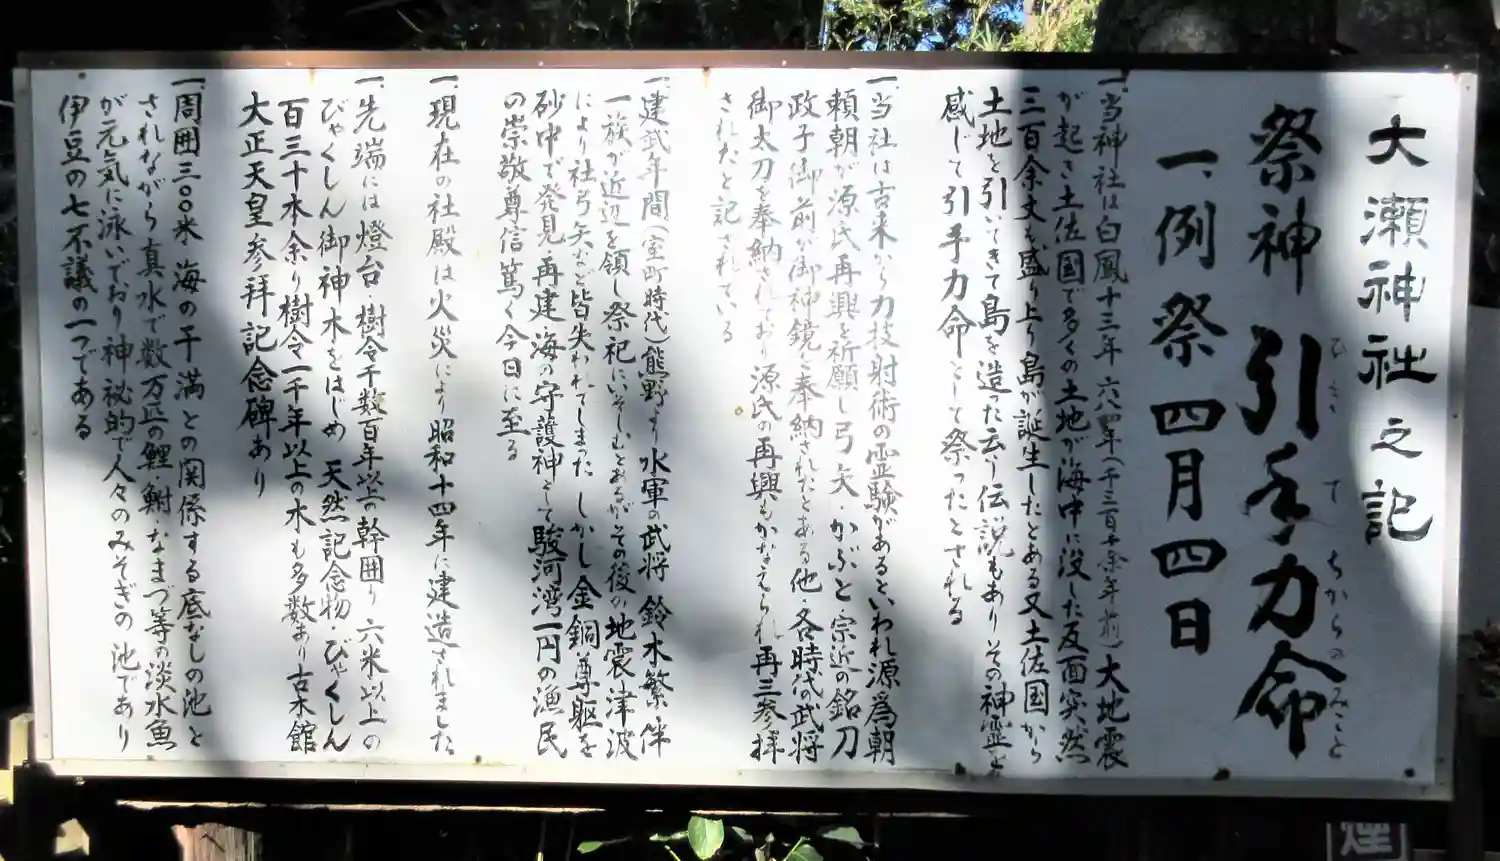 大瀬神社之記
祭神 引手力命
ひき て ちからのみこと
一、例祭 四月四日
一、当神社は白鳳十三年 六八四年(千三百年余年前)大地震
が起き土佐国で多くの土地が海中に没した反面突然
三百余丈も盛り上り島が誕生したとある又土佐国から
土地を引いてきて島を造った云う伝説もありその神霊を
感じて引手力命として祭ったとされる
一、当社は古来から力技射術の霊験があるといわれ源為朝
頼朝が源氏再興を祈願し弓 矢・かぶと・宗近の銘刀
政子御前が御神鏡を奉納されたとある他・各時代の武将
御太刀を奉納されており源氏の再興もかなえられ再三参拝
されたと記されている
一、建武年間(室町時代)熊野より水軍の武将 鈴木繁伴
一族が近辺を領し祭祀にいそしむとあるがその後の地震津波
により社弓矢など皆失われてしまった しかし金銅尊躯を
砂中で発見再建 海の守護神として駿河湾一円の漁民
の崇敬尊信篤く今日に至る
一、現在の社殿は火災により昭和十四年に建造されました
一、先端には燈台・樹令千数百年以上の幹囲り六米以上の
びゃくしん御神木をはじめ 天然記念物 びゃくしん
百三十本余り樹令一千年以上の木も多数あり古木館
大正天皇参拝記念碑あり
一、周囲三〇〇米 海の干満との関係する底なしの池と
されながら真水で数万匹の鯉・鮒・なまづ等の淡水魚
が元気に泳いでおり神秘的で人々のみそぎの池であり
伊豆の七不議の一つである
煙